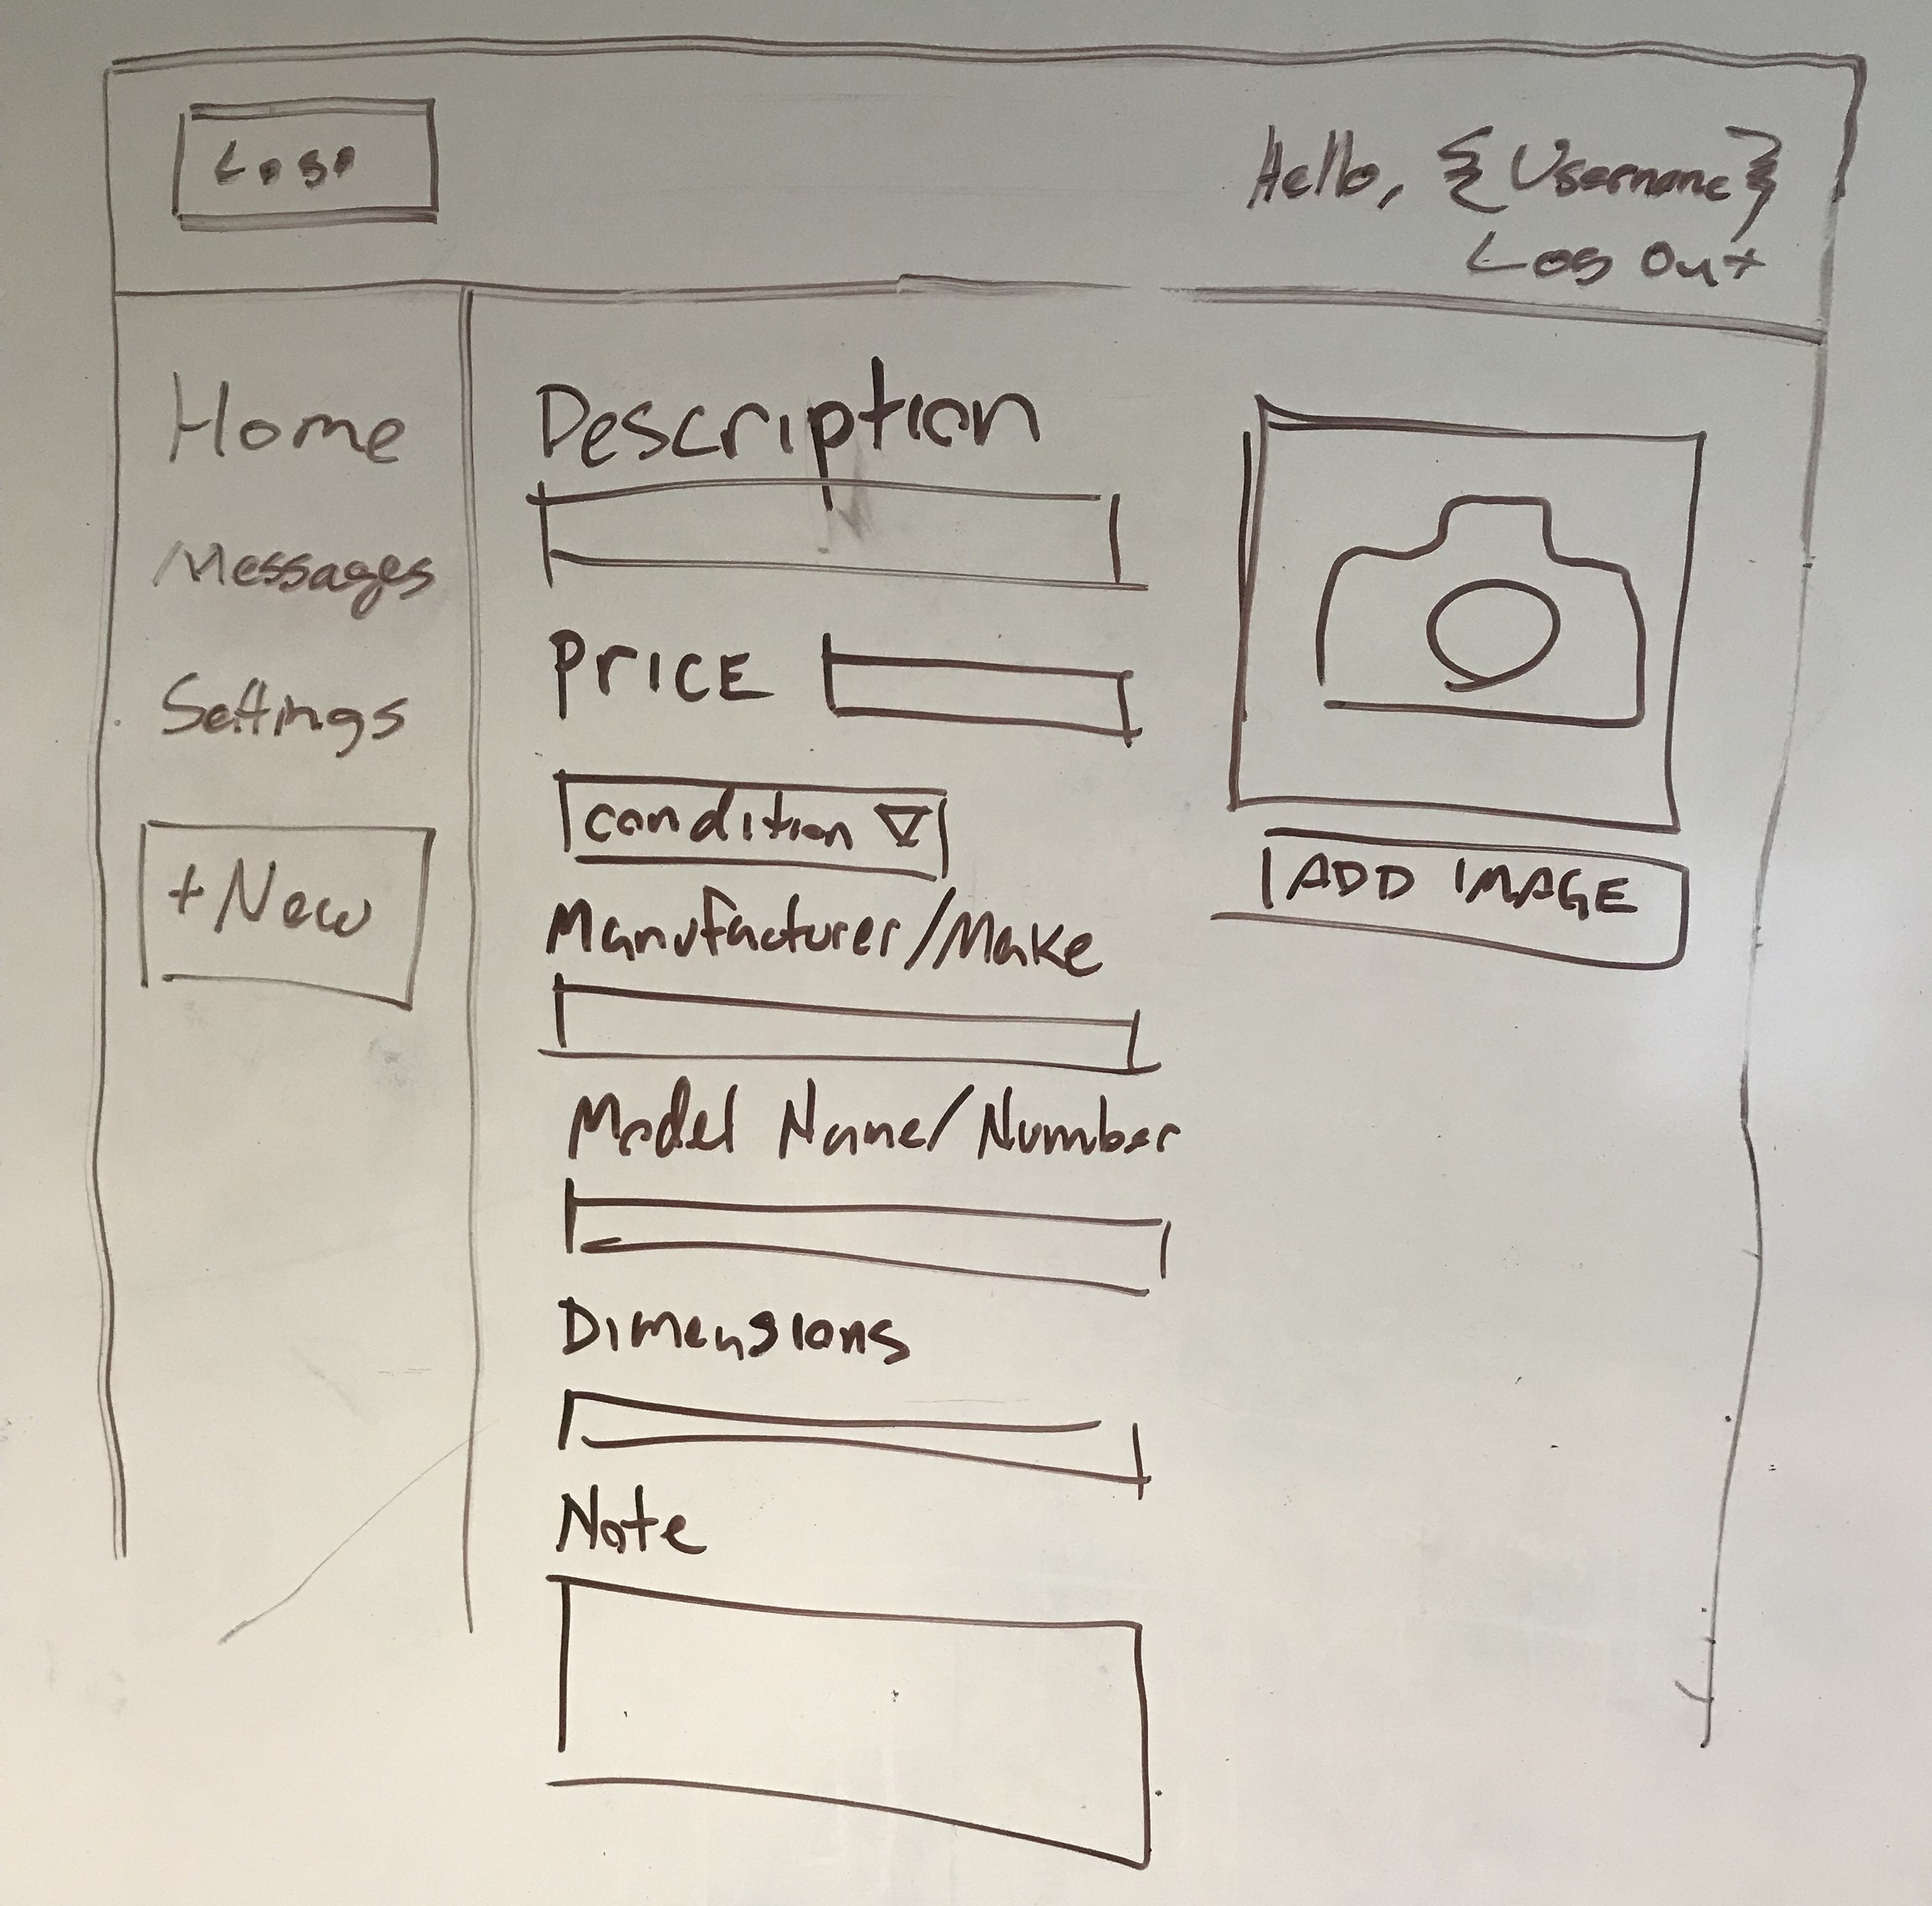 Logo
Hello, {Username}
Log Out
Home
Messages
Settings
+New
Description
PRICE
condition
Manufacturer/Make
Model Name/Number
Dimensions
Note
ADD IMAGE